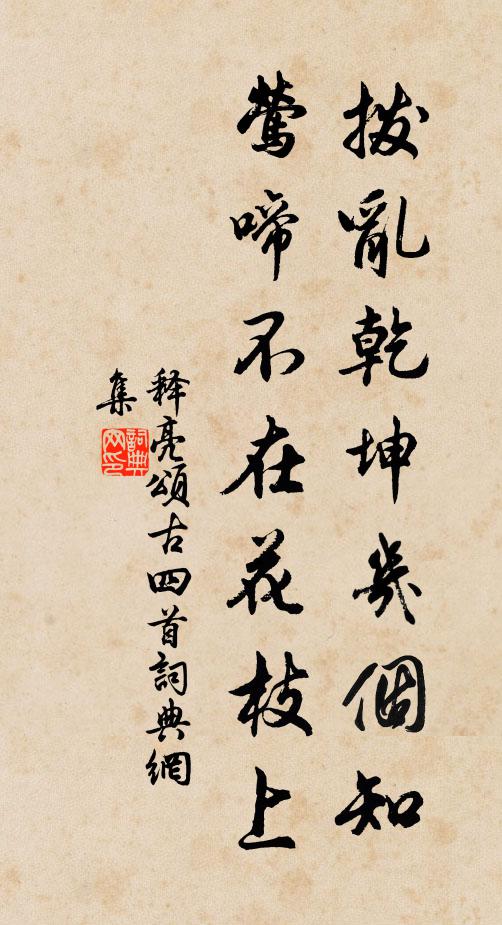 拨亂乾坤幾個知
鶯啼不在花枝上
释亮頌古四首詞典網
集
詞典
网印